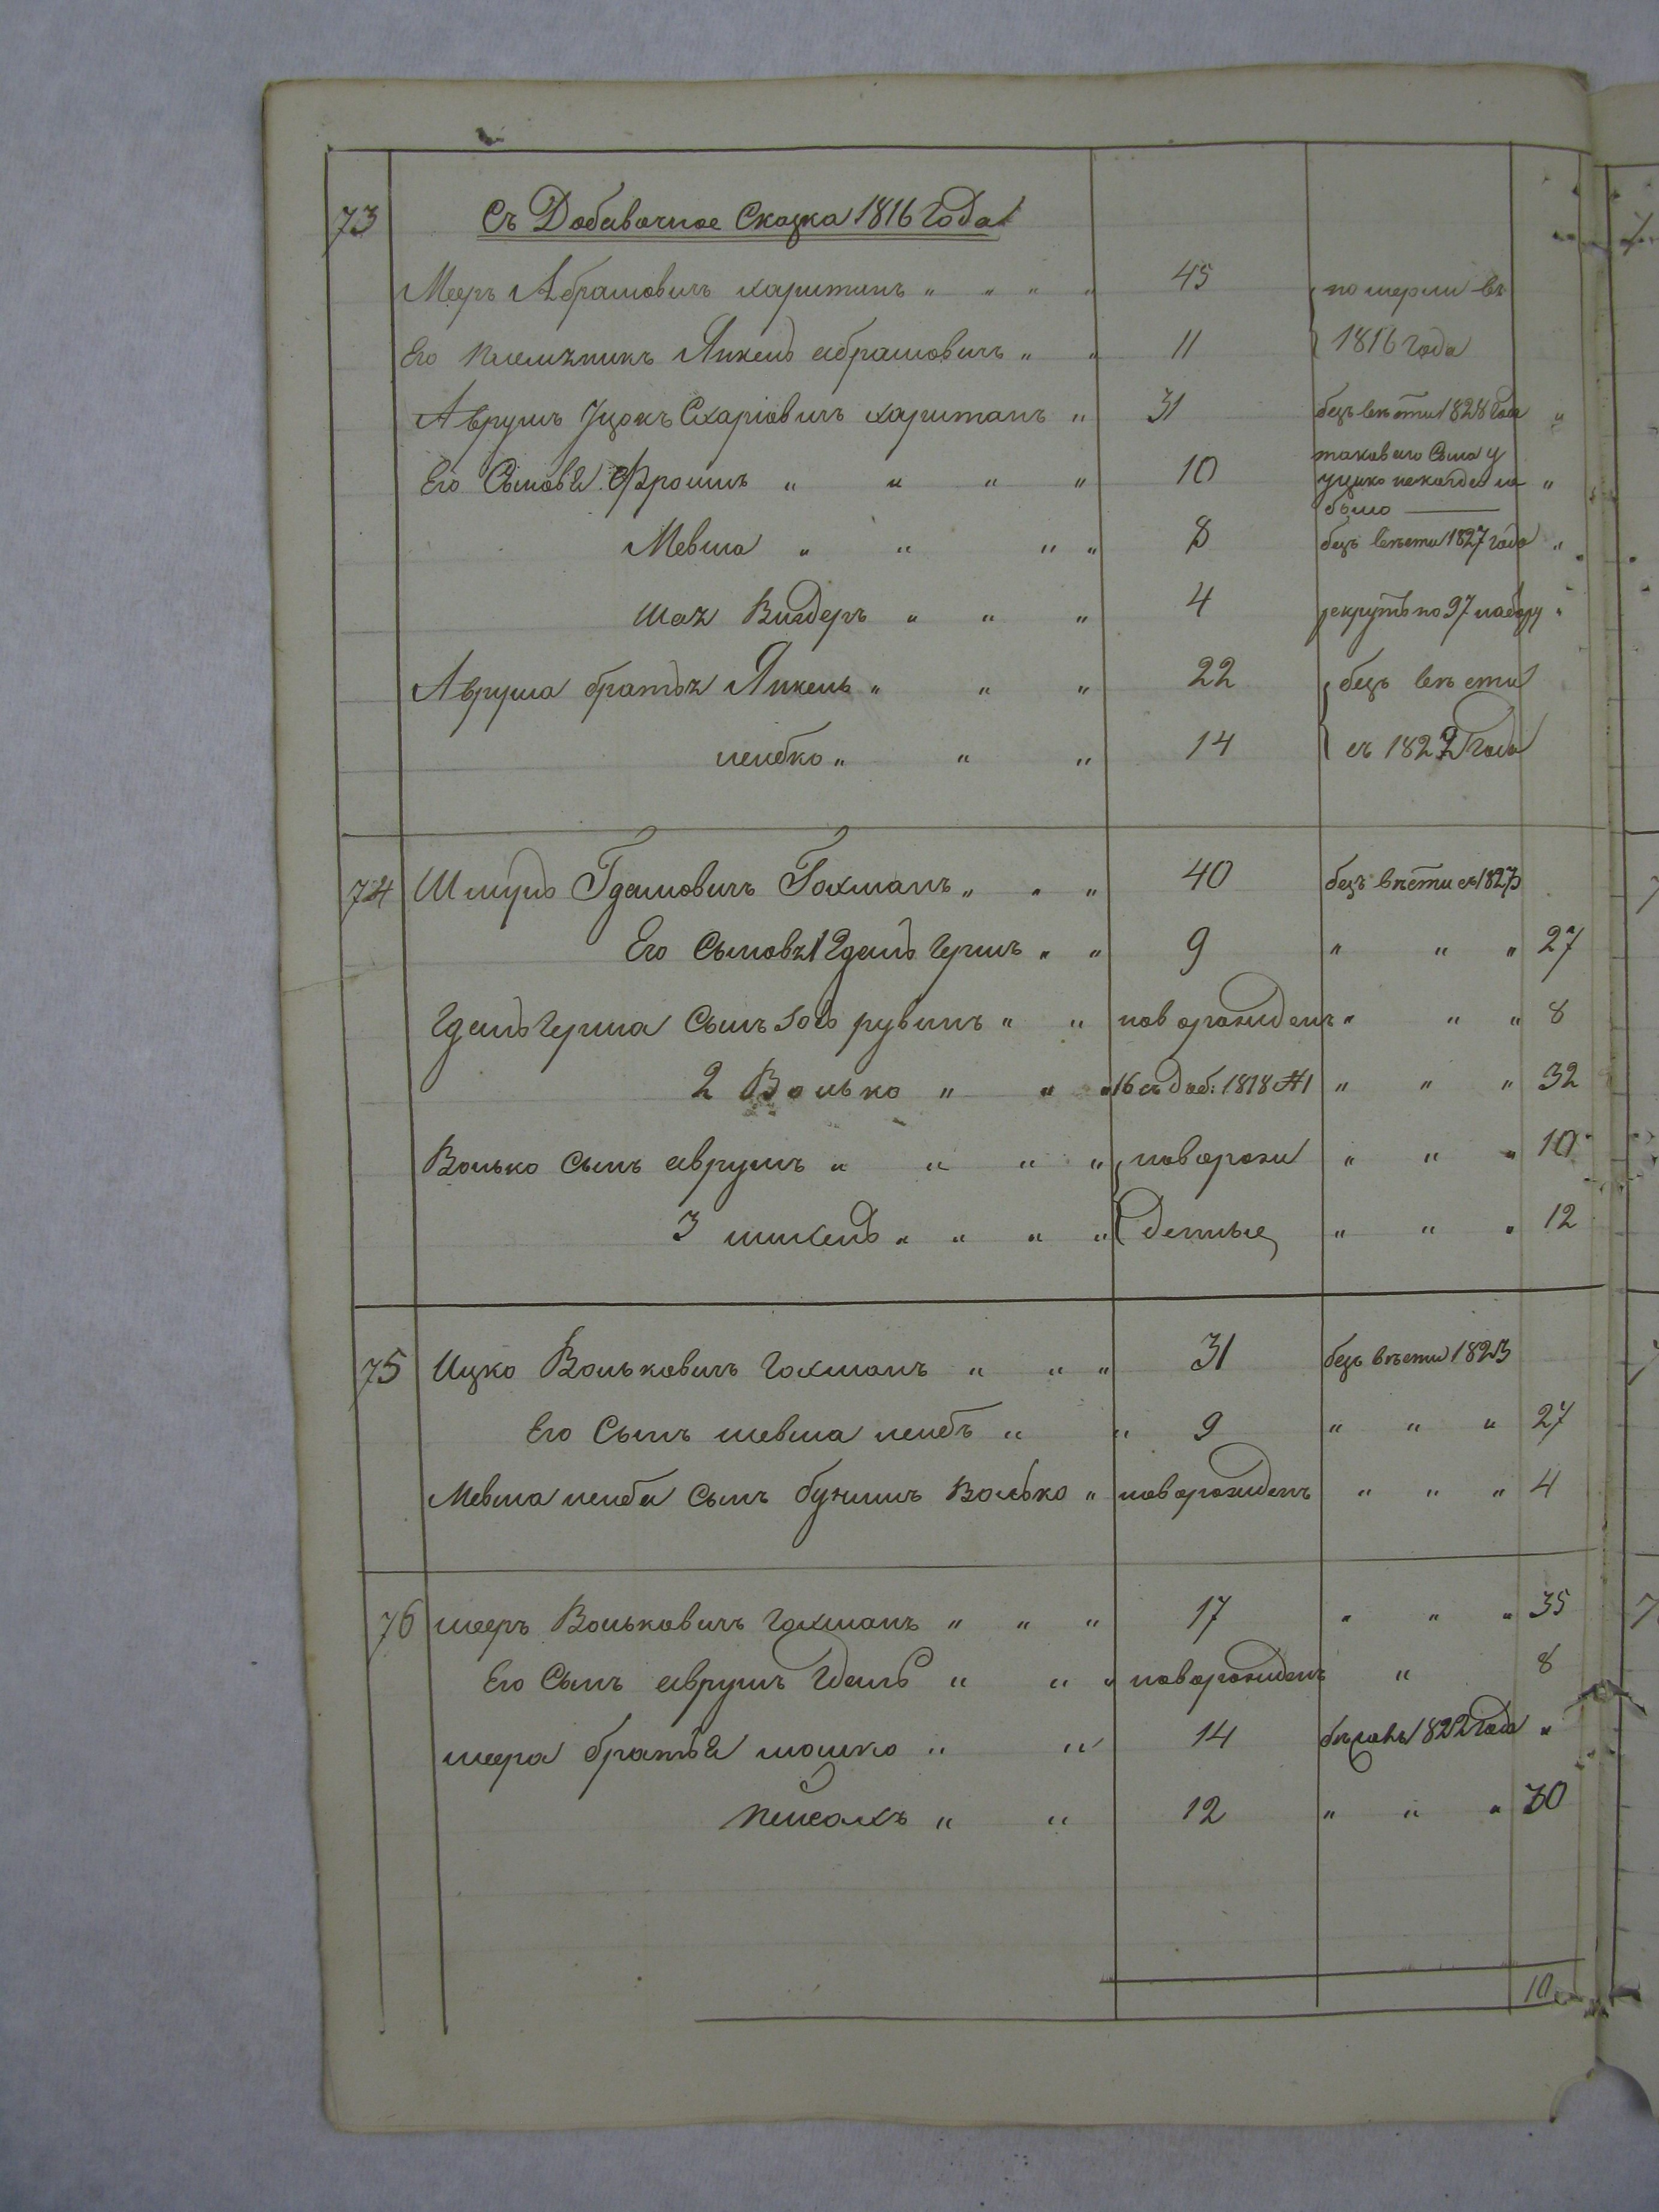 73 Съ Добавочное Сказка 1816 Года
Мееръ Абрамовичъ хаританъ " " " " 45 померли въ
Его племѣникъ Янкель абрамовичъ " " 11 1816 года
Аврумъ Ицокъ Схаріовичъ хаританъ " 31 безъ вѣсти 1828 года "
таковаго Сына у
Его Сыновя Фроимъ " " " " 10 ицико некогда не "
было
Мевша " " " " 8 безъ вѣсти 1827 года "
Шая Вигдеръ " " " 4 рекрутъ по 97 набору "
Аврума братья Янкель " " " 22 безъ вѣсти
лейбко " " " 14 съ 1827 года
74 Шмуль Гдамовичъ Гохманъ " " " 40 безъ вѣсти съ 1823
Его Сыновя 1 Гдаль Гершъ " " 9 " " " 27
Гдаль Герша Сынъ рувинъ " " новорожденъ " " " 8
2 Волько " " " 16 съ доб: 1818 № 1 " " " 32
Волько Сынъ аврумъ " " " " новорож " " " 10
3 михель " " " " денные " " " 12
75 Ицко Вольковичъ Гохманъ " " " 31 безъ вѣсти 1823
Его Сынъ мевша лейбъ " " 9 " " " 27
Мевша лейба Сынъ бунимъ Волько " новорожденъ " " " 4
76 мееръ Вольковичъ гохманъ " " " 17 " " " 35
Его Сынъ аврумъ Гдаль " " " новорожденъ " 8
меера братья мошко " " 14 бѣжавъ 1822 года "
пейсахъ " " 12 " " " 30
10